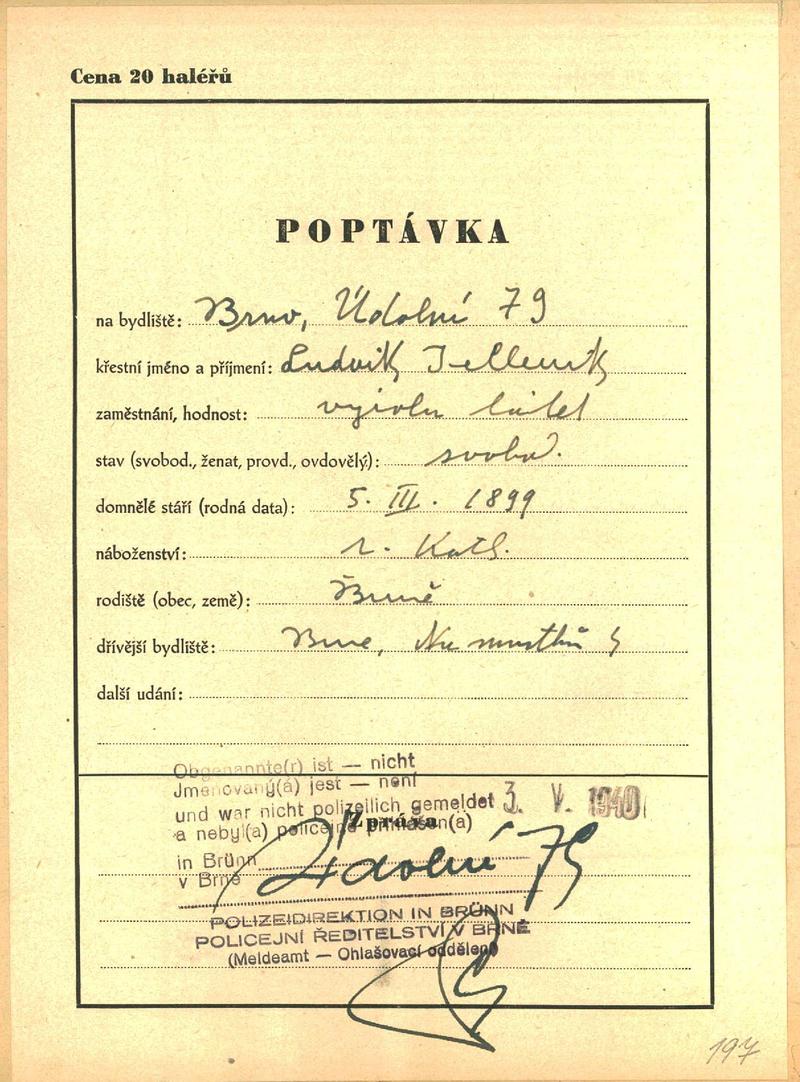 Cena 20 haléřů
POPTÁVKA
na bydliště: Brno, Údolní 79
křestní jméno a příjmení: Ludvik Jellenik
zaměstnání, hodnost:
stav (svobod., ženat, provd., ovdovělý): svobod.
domnělé stáří (rodná data): 5. III. 1899
náboženství: r. Kath.
rodiště (obec, země): Brně
dřívější bydliště: Brno, Na
další udání:
Obgenannte(r) ist — nicht
Jmenovaný(á) jest — není
und war nicht polizeilich gemeldet 3. V. 1940
a nebyl(a) policejně přihlášen(a)
Zpráva
in Brünn
v Brně
Údolní 79
POLIZEIDIREKTION IN BRÜNN
POLICEJNÍ ŘEDITELSTVÍ V BRNĚ
(Meldeamt — Ohlašovací oddělení)
197